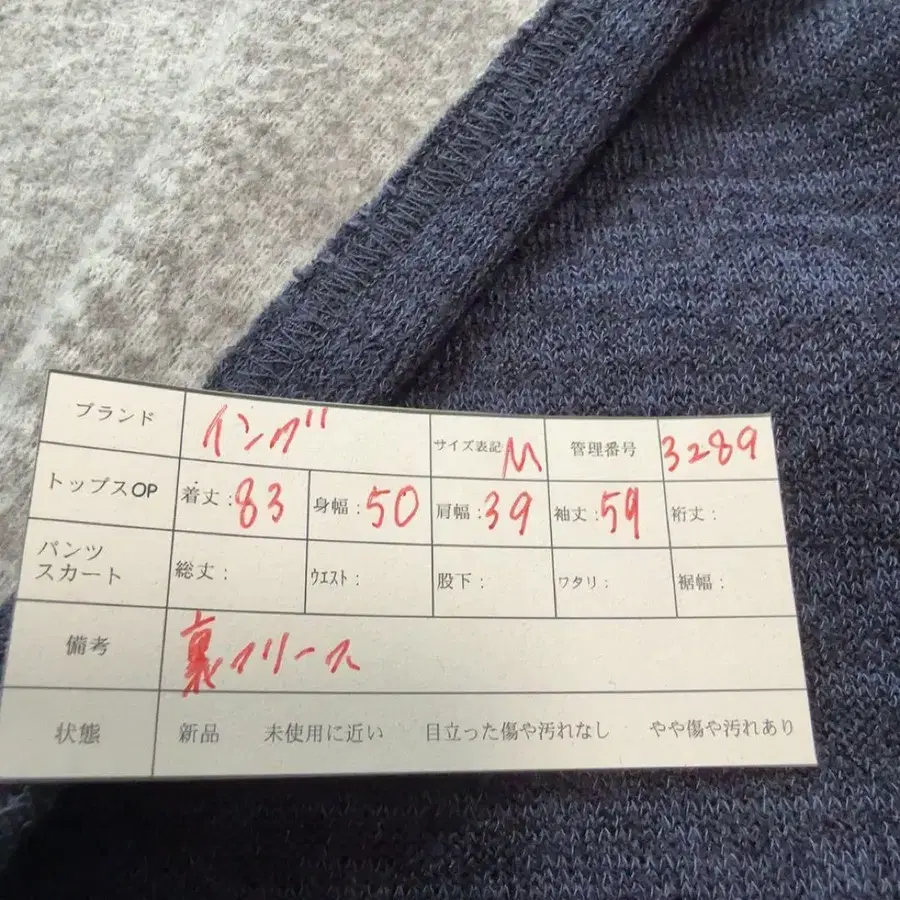 ブランド イング サイズ表記 M 管理番号 3289
トップスOP 着丈:83 身幅:50 肩幅:39 袖丈:59 裄丈:
パンツ
スカート 総丈: ウエスト: 股下: ワタリ: 裾幅:
備考 裏フリース
状態 新品 未使用に近い 目立った傷や汚れなし やや傷や汚れあり